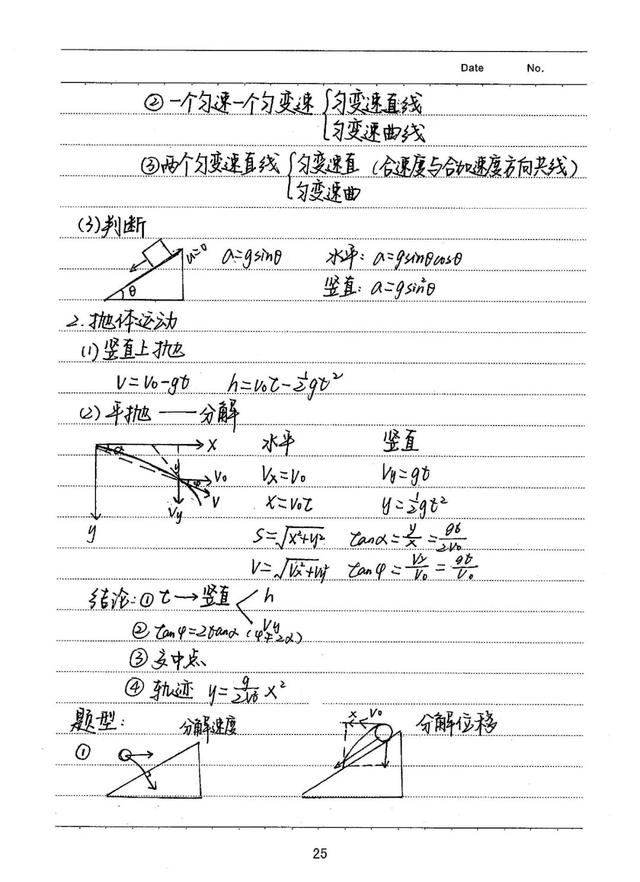 Date No.
② 一个匀速一个匀变速 { 匀变速直线
匀变速曲线
③ 两个匀变速直线 { 匀变速直 (合速度与合加速度方向共线)
匀变速曲
(3) 判断
θ u=0 a=gsinθ 水平: a=gsinθcosθ
竖直: a=gsin²θ
2. 抛体运动
(1) 竖直上抛
V=V₀-gt h=V₀t-½gt²
(2) 平抛 —— 分解
α X 水平 竖直
φ V₀ Vx=V₀ Vy=gt
y Vy V X=V₀t y=½gt²
S=√(X²+y²) tanα=y/x=gt/2V₀
V=√(Vx²+Vy²) tanφ=Vy/V₀=gt/V₀
结论: ① t → 竖直 < h
Vy
② tanφ=2tanα (φ≠2α)
③ 交中点
④ 轨迹 y=g/2V₀² X²
题型: 分解速度 x V₀ 分解位移
①
25